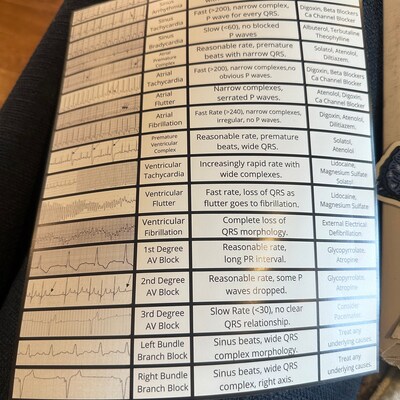 Arrhythmia
Sinus
Tachycardia
Fast (>200), narrow complex,
P wave for every QRS.
Digoxin, Beta Blockers
Ca Channel Blocker
Sinus
Bradycardia
Slow (<60), no blocked
P waves
Albuterol, Terbutaline
Theophylline
Premature
Complex
Reasonable rate, premature
beats with narrow QRS.
Solatol, Atenolol,
Diltiazem
Atrial
Tachycardia
Fast (>200), narrow complexes,no
obvious P waves.
Digoxin, Beta Blockers
Ca Channel Blocker
Atrial
Flutter
Narrow complexes,
serrated P waves.
Atenolol, Digoxin,
Ca Channel Blocker
Atrial
Fibrillation
Fast Rate (>240), narrow complexes,
irregular, no P waves.
Digoxin, Atenolol,
Diltiazem.
Premature
Ventricular
Complex
Reasonable rate, premature
beats, wide QRS.
Solatol,
Atenolol
Ventricular
Tachycardia
Increasingly rapid rate with
wide complexes.
Lidocaine,
Magnesium Sulfate
Solatol
Ventricular
Flutter
Fast rate, loss of QRS as
flutter goes to fibrillation.
Lidocaine,
Magnesium Sulfate
Ventricular
Fibrillation
Complete loss of
QRS morphology.
External Electrical
Defibrillation
1st Degree
AV Block
Reasonable rate,
long PR interval.
Glycopyrrolate,
Atropine
2nd Degree
AV Block
Reasonable rate, some P
waves dropped.
Glycopyrrolate,
Atropine
3rd Degree
AV Block
Slow Rate (<30), no clear
QRS relationship.
Left Bundle
Branch Block
Sinus beats, wide QRS
complex morphology.
Treat any
underlying causes.
Right Bundle
Branch Block
Sinus beats, wide QRS
complex, right axis.
Treat any
underlying causes.